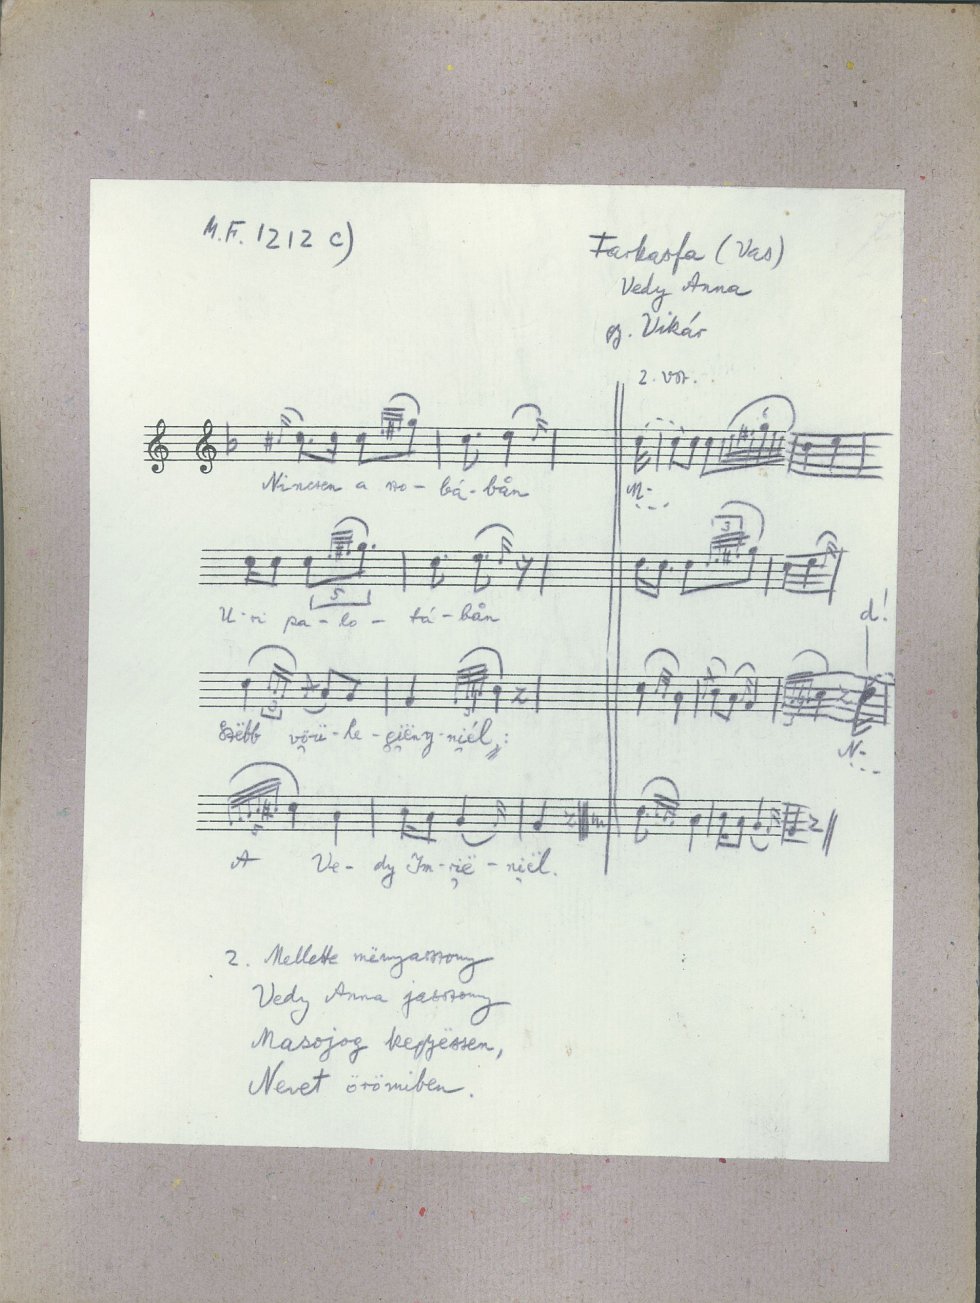 M.F. 1212 c)
Farkasfa (Vas)
Vedy Anna
gy. Vikár
2. vsz.
Nincsen a szo - bá - bån
N-
3
U - ri pa - lo - tá - bån
5
d!
Szëbb vörü - le - giëny - niél;
3
N-
A Ve - dy Im - rië - niël.
2. Mellette mënyasszony
Vedy Anna jasszony
Masojog kegyëssen,
Nevet örömiben.